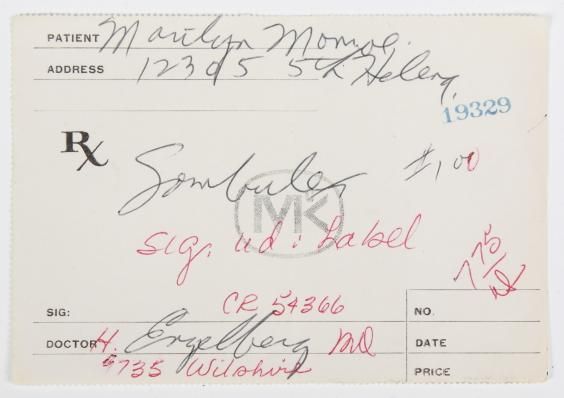 PATIENT Marilyn Monroe.
ADDRESS 12305 5th Helena
19329
Rx
Sombulex #100
MK
sig. ud: Label
775
SIG: CR 54366 NO.
DOCTOR H. Engelberg MD DATE
9735 Wilshire PRICE